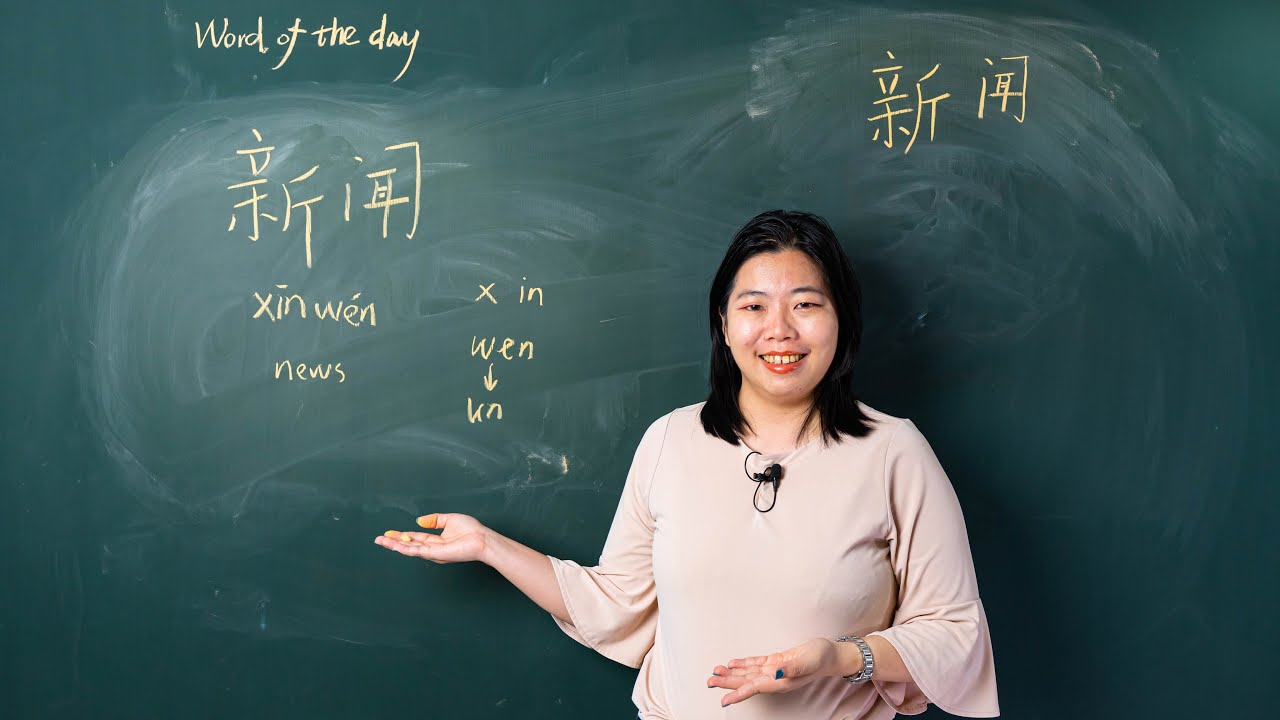 Word of the day
新闻
新闻
xīn wén
x in
news
wen
↓
un